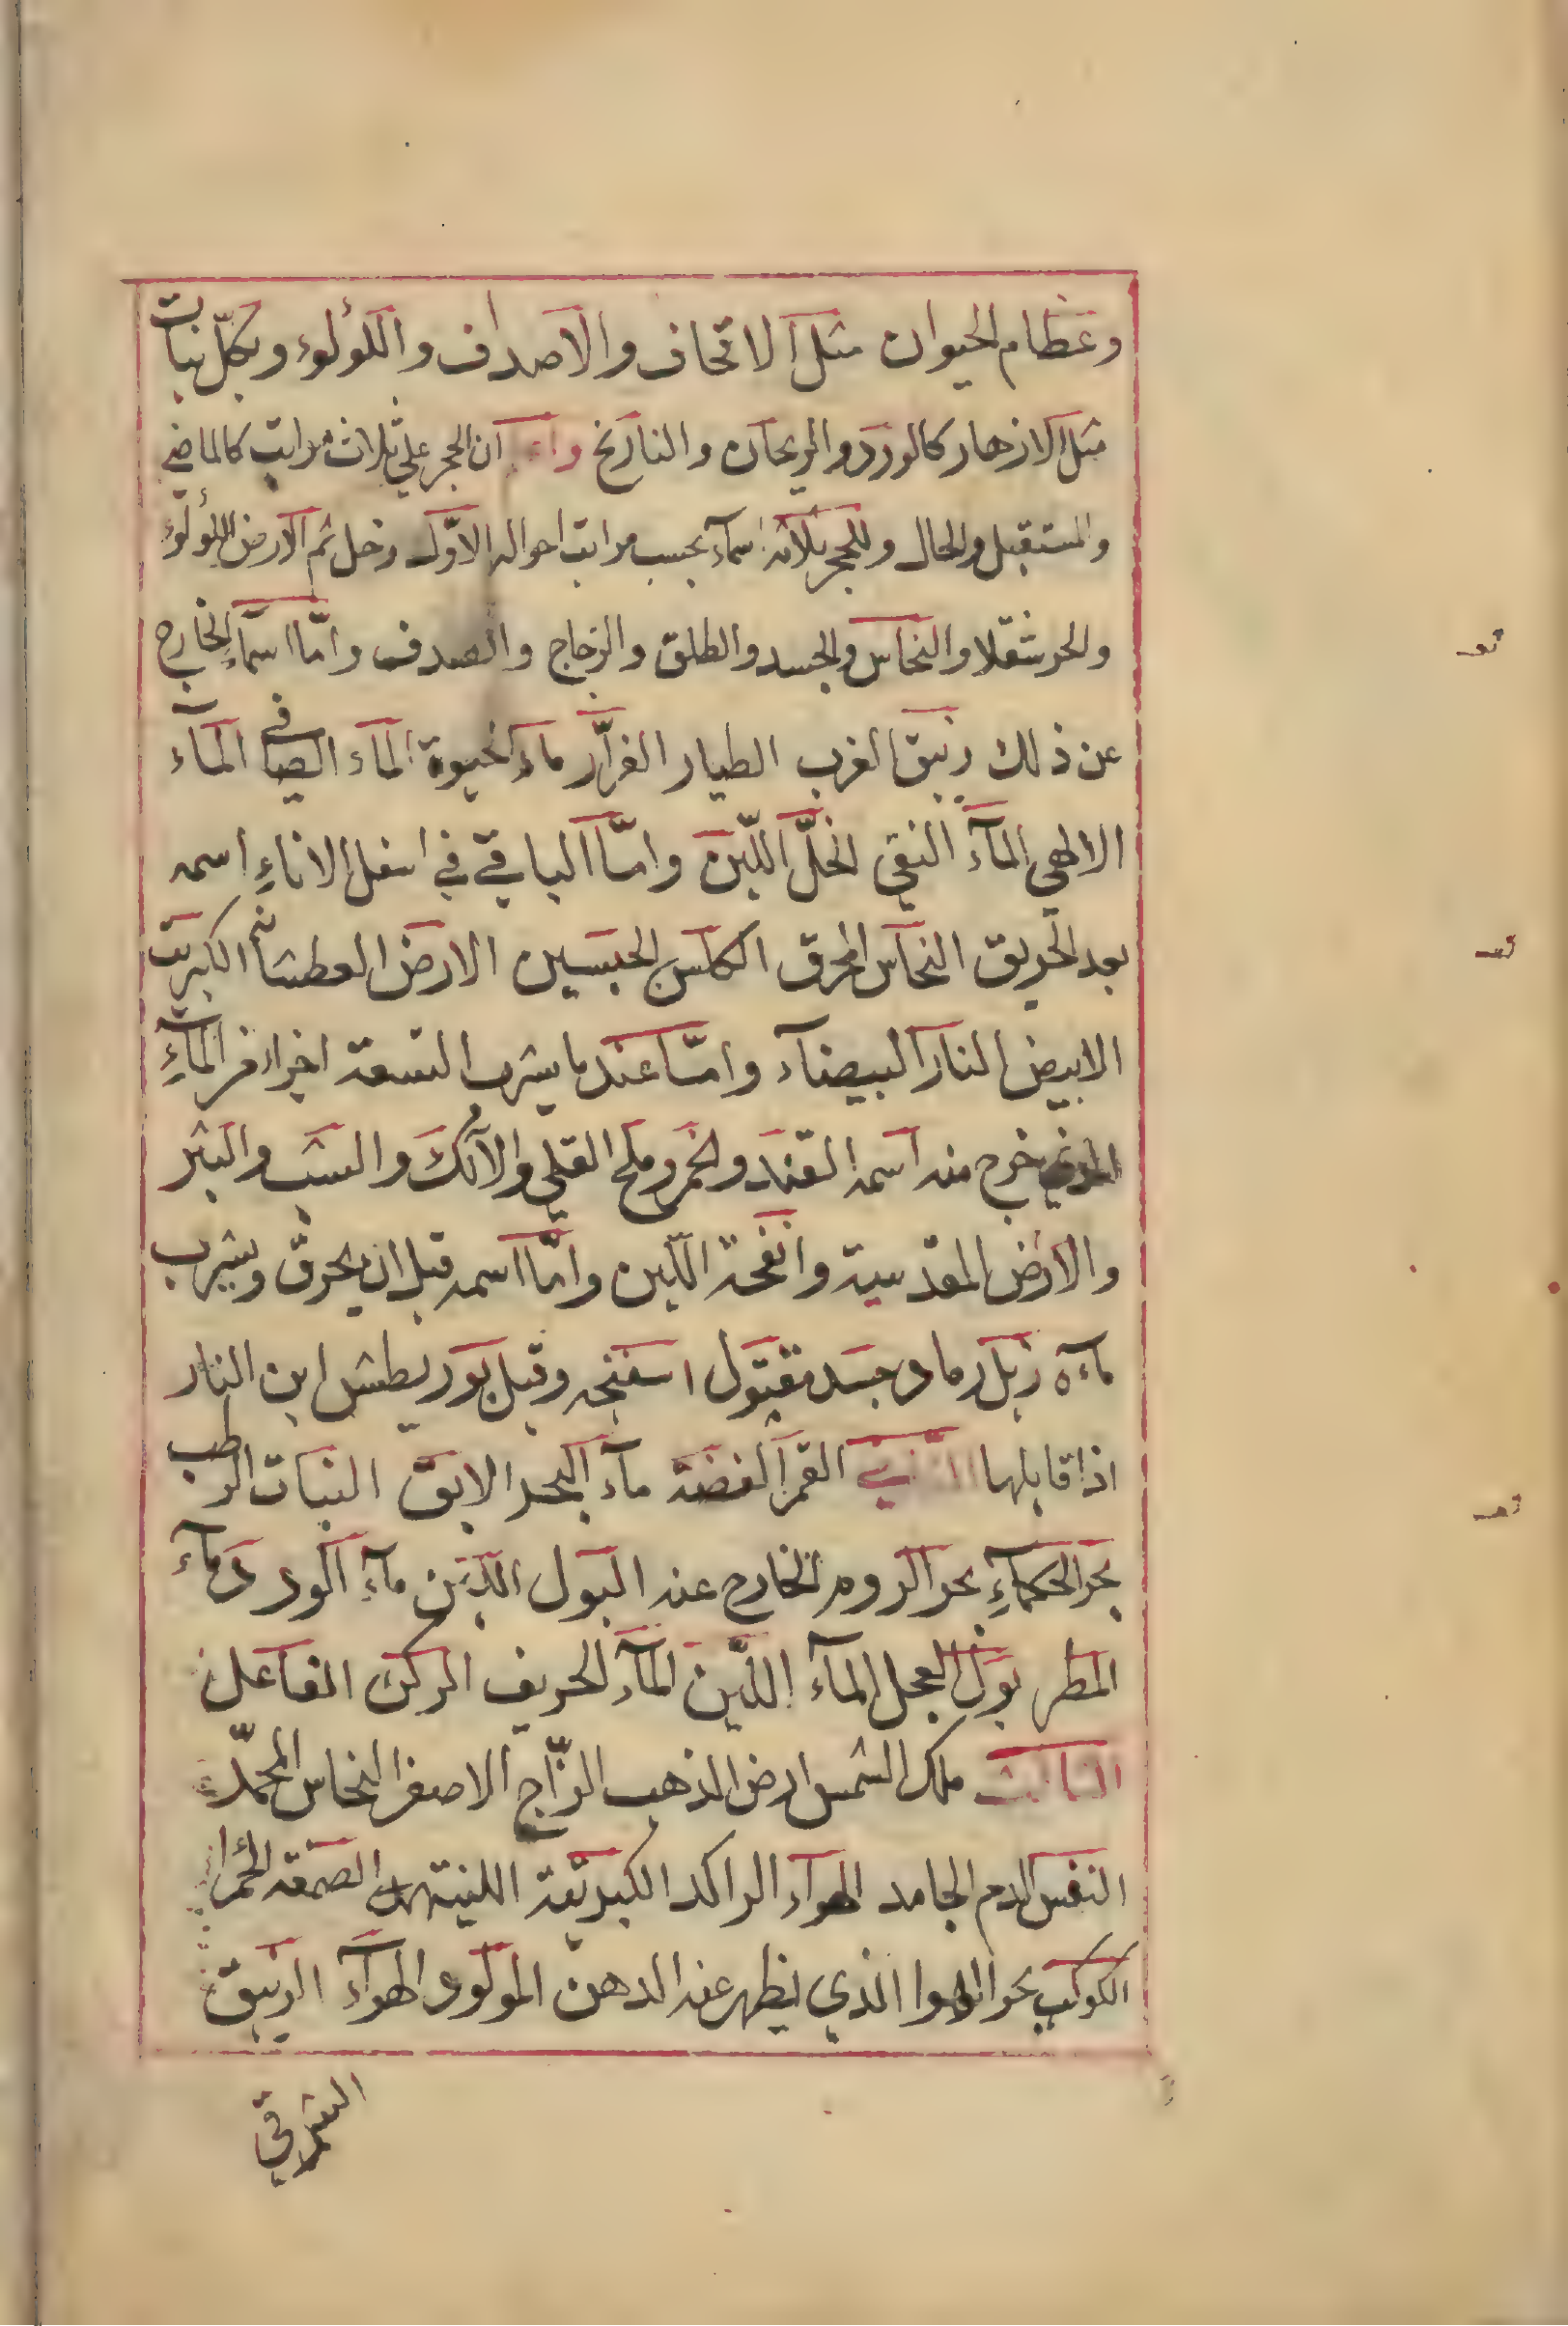 وعظام الحيوان مثل الاقحاف والاصداف واللؤلوء وبكلّ نبات
مثل الازهار كالورد والريحان والنارنج ان الحجر على ثلاث مراتب كالماضي
والمستقبل والحال وللحجر ثلاثه اسمآء بحسب مراتب احواله الاوّل زحل ثم الارض اللؤلؤ
والخرشقلا والنحاس والجسد والطلق والزجاج والصدف وامّا اسمآء الخارج
عن ذلك زيبق الغرب الطيار الفرّار مآء الحيوة المآء الصافي المآء
الالهي المآء النقي الخلّ اللبن وامّا الباقي في اسفل الاناءِ اسمه
بعد الحريق النحاس المحرق الكلس الجبسين الارض العطشانه الكبريت
الابيض النار البيضآء وامّا عند ما يشرب التسعة اخرا من المآءِ
الذي خرج منه اسمه القند والخمر وملح القلي والآنك والشب والبثر
والارض المقدسية وانفحة اللبن وامّا اسمه قبل ان يحرق ويشرب
مآءه زبل رماد جسد مقتول اسفنجه وقبل بوريطش ابن النار
اذا قابلها الثاني القمر الفضة مآء البحر الابق النبات الرطب
بحر الحكمآءِ بحر الروم الخارج عنه البول اللبن مآء الورد ومآء
المطر بول العجل المآء اللبن المآء الحريف الركن الفاعل
الثالث ملك الشمس ارض الذهب الزاج الاصفر النحاس
النفس الدم الجامد الهوآء الراكد الكبريتة الصمغه الحمرا
الكوكب بحر الهوا الذي يظهر عنه الدهن المولود الهوآء الزيبق
الشرقي